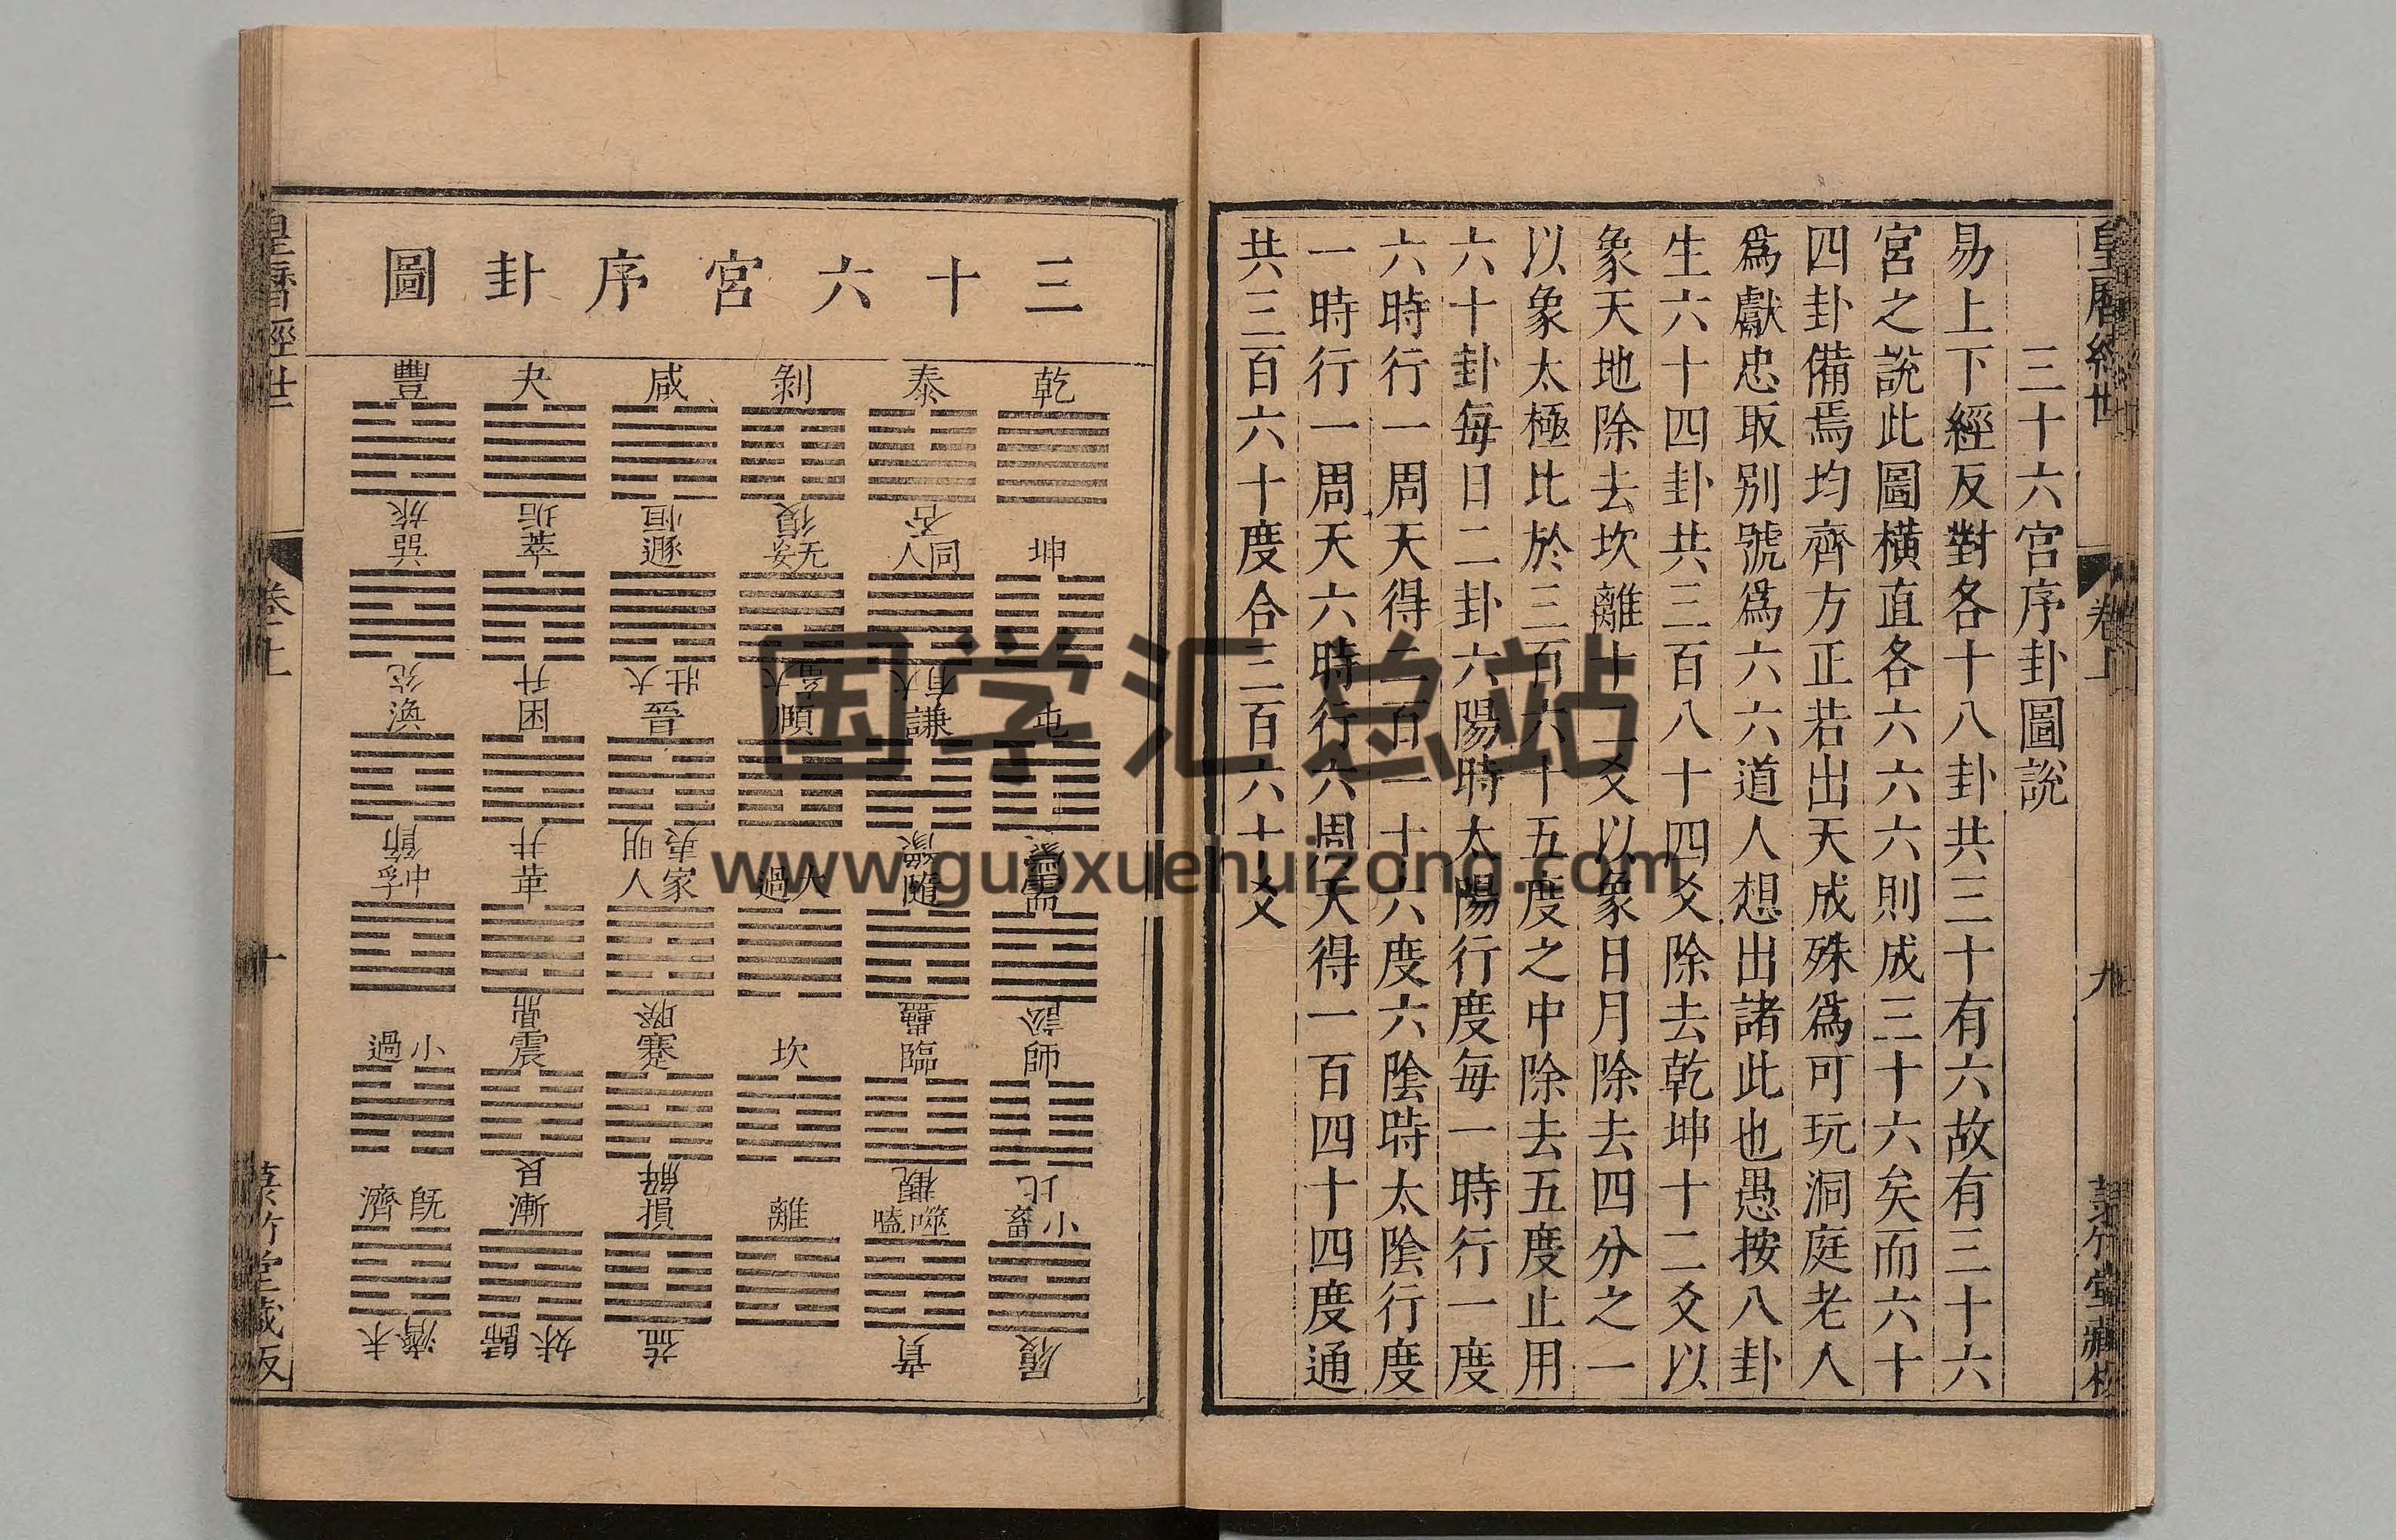 皇曆經世
卷上
九
菉竹堂藏板
三十六宮序卦圖說
易上下經反對各十八卦共三十有六故有三十六
宮之說此圖橫直各六六六則成三十六矣而六十
四卦備焉均齊方正若出天成殊爲可玩洞庭老人
爲獻忠取別號爲六六道人想出諸此也愚按八卦
生六十四卦共三百八十四爻除去乾坤十二爻以
象天地除去坎離十二爻以象日月除去四分之一
以象太極比於三百六十五度之中除去五度止用
六十卦每日二卦六陽時太陽行度每一時行一度
六時行一周天得二百一十六度六陰時太陰行度
一時行一周天六時行六周天得一百四十四度通
共三百六十度合三百六十爻
三十六宮序卦圖
乾
坤
屯
蒙
需
訟
師
比
小畜
履
泰
否
同人
大有
謙
豫
隨
蠱
臨
觀
噬嗑
賁
剝
復
无妄
大畜
頤
大過
坎
離
咸
恒
遯
大壯
晉
明夷
家人
睽
蹇
解
損
益
夬
姤
萃
升
困
井
革
鼎
震
艮
漸
歸妹
豐
旅
巽
兌
渙
節
中孚
小過
既濟
未濟
皇曆經世
卷上
十
菉竹堂藏板
国学汇总站
www.guoxuehuizong.com